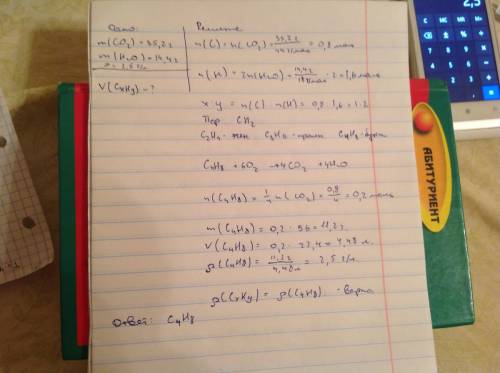 Дано:
m(CO2) = 35,2 г
m(H2O) = 14,4 г
ρ = 2,5 г/л
V(CxHy) - ?
Решение
n(C) = n(CO2) = 35,2 г / 44 г/моль = 0,8 моль
n(H) = 2n(H2O) = 14,4 г / 18 г/моль · 2 = 1,6 моль
x : y = n(C) : n(H) = 0,8 : 1,6 = 1:2
CH2
C2H4 - C3H6 - C4H8 -
C4H8 + 6O2 → 4CO2 + 4H2O
n(C4H8) = 1/4 n(CO2) = 0,8/4 = 0,2 моль
m(C4H8) = 0,2 · 56 = 11,2 г
V(C4H8) = 0,2 · 22,4 = 4,48 л
ρ(C4H8) = 11,2 г / 4,48 л = 2,5 г/л
ρ(CxHy) = ρ(C4H8) - верно
Ответ: C4H8
АБИТУРИЕНТ
2,5